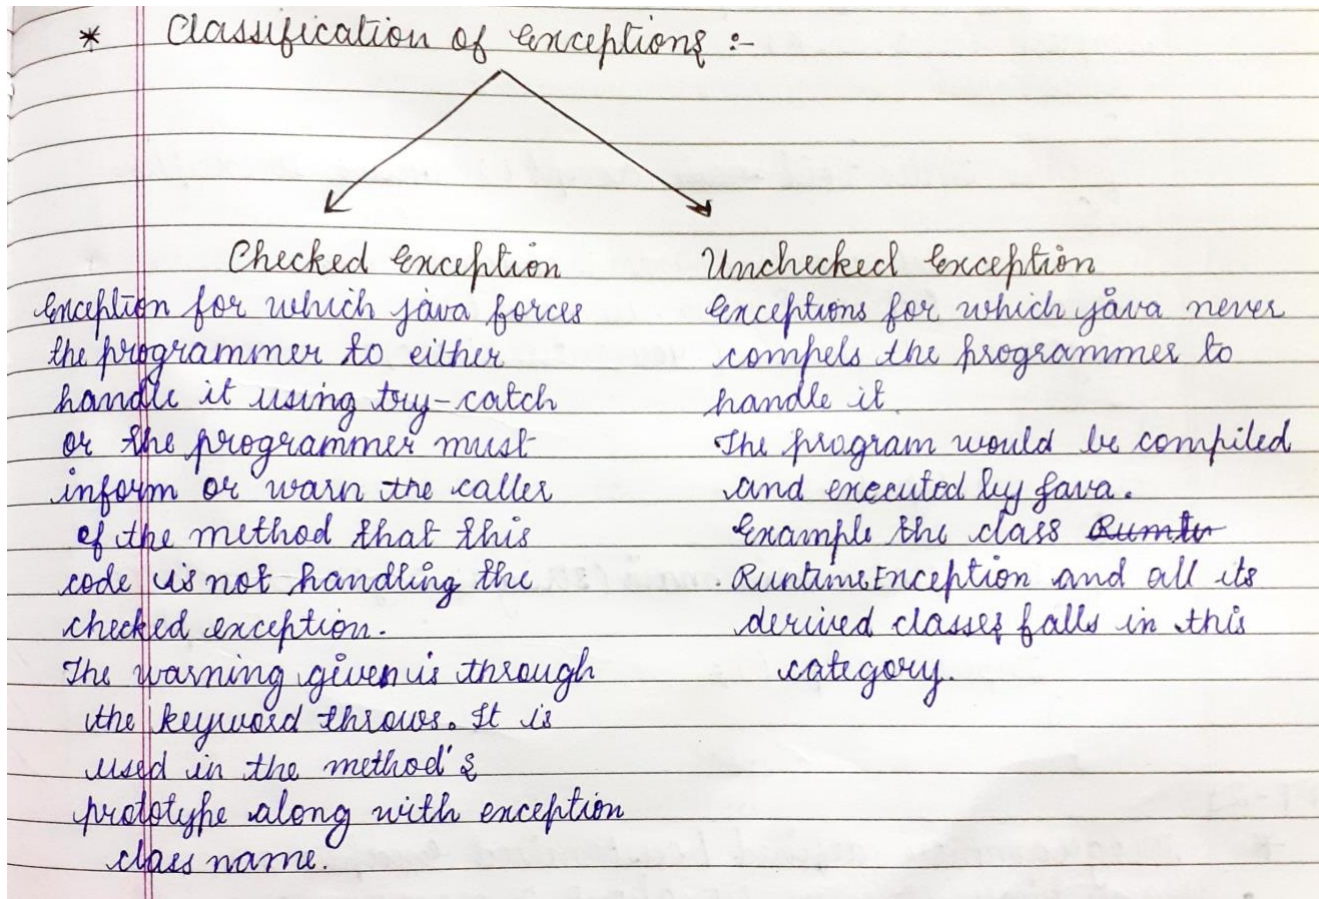 * Classification of Exceptions :-
Checked Exception
Exception for which java forces
the programmer to either
handle it using try-catch
or the programmer must
inform or warn the caller
of the method that this
code is not handling the
checked exception.
The warning given is through
the keyword throws. It is
used in the method's
prototype along with exception
class name.
Unchecked Exception
Exceptions for which java never
compels the programmer to
handle it.
The program would be compiled
and executed by Java.
Example the class
RuntimeException and all its
derived classes falls in this
category.